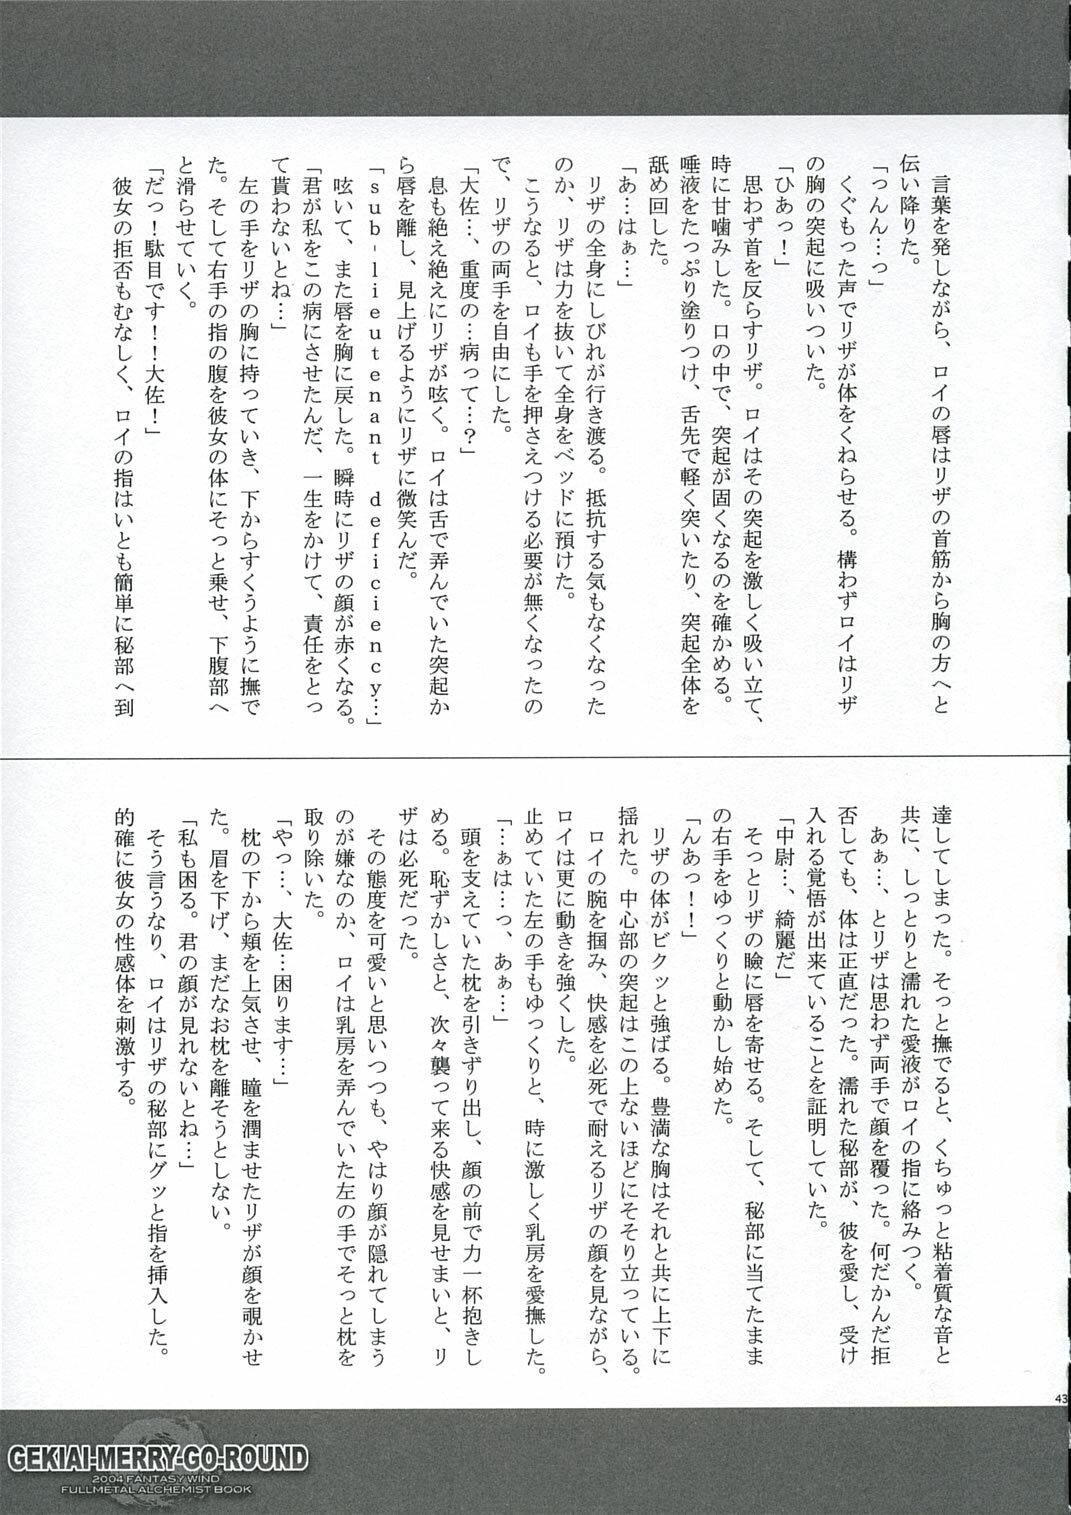 言葉を発しながら、ロイの唇はリザの首筋から胸の方へと
伝い降りた。
「っんん…っ」
くぐもった声でリザが体をくねらせる。構わずロイはリザ
の胸の突起に吸いついた。
「ひあっ！」
思わず首を反らすリザ。ロイはその突起を激しく吸い立て、
時に甘噛みした。口の中で、突起が固くなるのを確かめる。
唾液をたっぷり塗りつけ、舌先で軽く突いたり、突起全体を
舐め回した。
「あ…はぁ…」
リザの全身にしびれが行き渡る。抵抗する気もなくなった
のか、リザは力を抜いて全身をベッドに預けた。
こうなると、ロイも手を押さえつける必要が無くなったの
で、リザの両手を自由にした。
「大佐…、重度の…病って…？」
息も絶え絶えにリザが呟く。ロイは舌で弄んでいた突起か
ら唇を離し、見上げるようにリザに微笑んだ。
「sub-lieutenant deficiency…」
呟いて、また唇を胸に戻した。瞬時にリザの顔が赤くなる。
「君が私をこの病にさせたんだ、一生をかけて、責任をとっ
て貰わないとね…」
左の手をリザの胸に持っていき、下からすくうように撫で
た。そして右手の指の腹を彼女の体にそっと乗せ、下腹部へ
と滑らせていく。
「だっ！駄目です！！大佐！」
彼女の拒否もむなしく、ロイの指はいとも簡単に秘部へ到
達してしまった。そっと撫でると、くちゅっと粘着質な音と
共に、しっとりと濡れた愛液がロイの指に絡みつく。
あぁ…、とリザは思わず両手で顔を覆った。何だかんだ拒
否しても、体は正直だった。濡れた秘部が、彼を愛し、受け
入れる覚悟が出来ていることを証明していた。
「中尉…、綺麗だ」
そっとリザの瞼に唇を寄せる。そして、秘部に当てたまま
の右手をゆっくりと動かし始めた。
「んあっ！！」
リザの体がビクッと強ばる。豊満な胸はそれと共に上下に
揺れた。中心部の突起はこの上ないほどにそそり立っている。
ロイの腕を掴み、快感を必死で耐えるリザの顔を見ながら、
ロイは更に動きを強くした。
止めていた左の手もゆっくりと、時に激しく乳房を愛撫した。
「…ぁは…っ、あぁ…」
頭を支えていた枕を引きずり出し、顔の前で力一杯抱きし
める。恥ずかしさと、次々襲って来る快感を見せまいと、リ
ザは必死だった。
その態度を可愛いと思いつつも、やはり顔が隠れてしまう
のが嫌なのか、ロイは乳房を弄んでいた左の手でそっと枕を
取り除いた。
「やっ…、大佐…困ります…」
枕の下から頬を上気させ、瞳を潤ませたリザが顔を覗かせ
た。眉を下げ、まだなお枕を離そうとしない。
「私も困る。君の顔が見れないとね…」
そう言うなり、ロイはリザの秘部にグッと指を挿入した。
的確に彼女の性感体を刺激する。
43
GEKIAI-MERRY-GO-ROUND
2004 FANTASY WIND
FULLMETAL ALCHEMIST BOOK